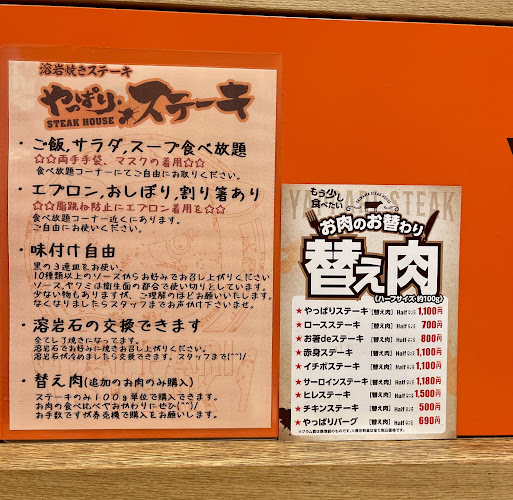 溶岩焼きステーキ
やっぱりステーキ
STEAK HOUSE
・ご飯,サラダ,スープ食べ放題
☆☆両手手袋、マスクの着用☆☆
食べ放題コーナーにてご自由にお取りください。
・エプロン,おしぼり,割り箸あり
☆☆脂跳ね防止にエプロン着用を☆☆
食べ放題コーナー近くにあります。
ご自由にお使いください。
・味付け自由
黒の3連皿をお使い、
10種類以上のソースからお好みでお召し上がりください
ソース,ヤクミは衛生面の都合で使い切りとしています。
少ない物もありますが、ご理解のほどお願いいたします。
なくなりましたらスタッフまでお声がけ下さいませ。
・溶岩石の交換できます
全てレア焼きになってます。
溶岩石でお好みに焼きお召し上がりください。
溶岩石が冷めましたら交換できます。スタッフまで(^^)/
・替え肉(追加のお肉のみ購入)
ステーキのみ100g単位で購入できます。
お肉の食べ比べやおかわりにぜひ(^^)/
お手数ですが券売機で購入をお願いします。
もう少し食べたい
YAPPARI STEAK
お肉のお替わり
替え肉
(ハーフサイズ 約100g)
★やっぱりステーキ [替え肉] Half サイズ 1,100円
★ロースステーキ [替え肉] Half サイズ 700円
★お箸deステーキ [替え肉] Half サイズ 800円
★赤身ステーキ [替え肉] Half サイズ 1,100円
★イチボステーキ [替え肉] Half サイズ 1,100円
★サーロインステーキ [替え肉] Half サイズ 1,180円
★ヒレステーキ [替え肉] Half サイズ 1,500円
★チキンステーキ [替え肉] Half サイズ 500円
★やっぱりバーグ [替え肉] Half サイズ 690円
※グラム数は調理前のものです。※表示料金は全て税込価格です。